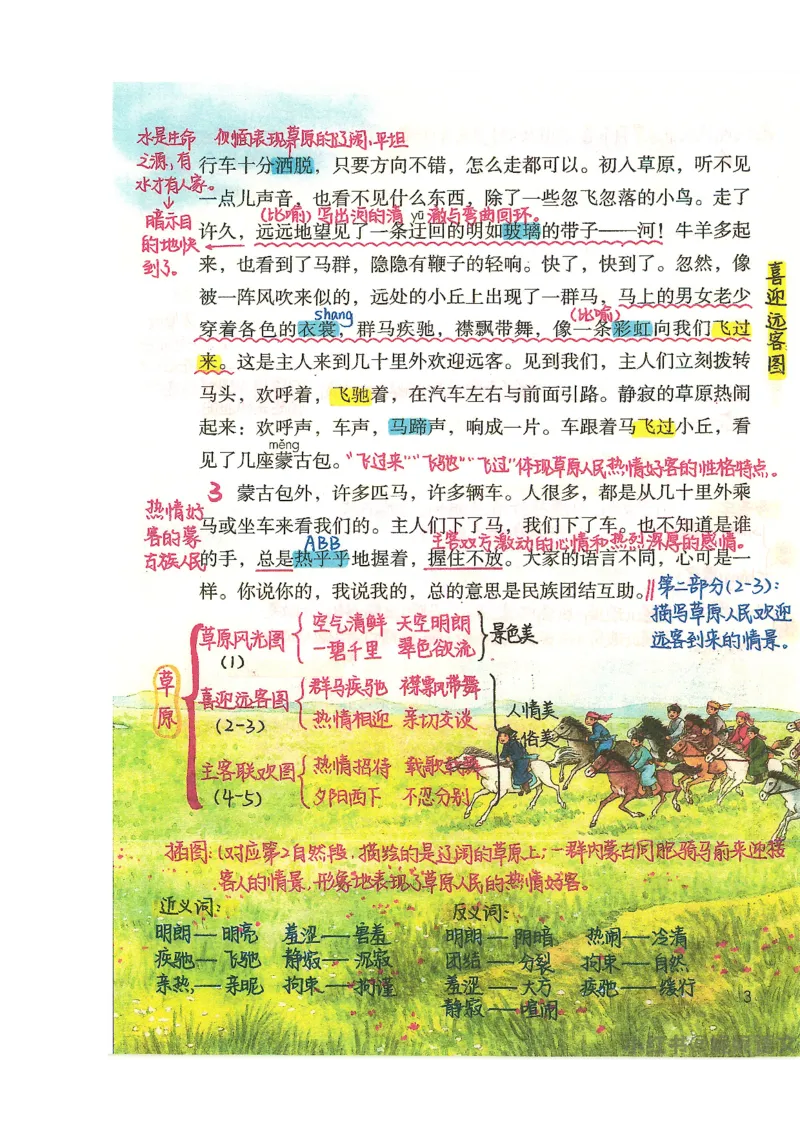 水是生命
之源,有
水才有人家。
↓
暗示目
的地快
到了。
侧面表现草原的辽阔、平坦
行车十分洒脱，只要方向不错，怎么走都可以。初入草原，听不见
一点儿声音，也看不见什么东西，除了一些忽飞忽落的小鸟。走了
(比喻) 写出河的清 yū 澈与弯曲回环。
许久，远远地望见了一条迂回的明如玻璃的带子——河！牛羊多起
来，也看到了马群，隐隐有鞭子的轻响。快了，快到了。忽然，像
被一阵风吹来似的，远处的小丘上出现了一群马，马上的男女老少
shang (比喻)
穿着各色的衣裳，群马疾驰，襟飘带舞，像一条彩虹向我们飞过
来。这是主人来到几十里外欢迎远客。见到我们，主人们立刻拨转
马头，欢呼着，飞驰着，在汽车左右与前面引路。静寂的草原热闹
起来：欢呼声，车声，马蹄声，响成一片。车跟着马飞过小丘，看
měng
见了几座蒙古包。
"飞过来""飞驰""飞过"体现草原人民热情好客的性格特点。
喜迎远客图
3 蒙古包外，许多匹马，许多辆车。人很多，都是从几十里外乘
马或坐车来看我们的。主人们下了马，我们下了车。也不知道是谁
ABB 主客双方激动的心情和热烈深厚的感情。
的手，总是热乎乎地握着，握住不放。大家的语言不同，心可是一
样。你说你的，我说我的，总的意思是民族团结互助。
热情好
客的蒙
古族人民
第二部分(2-3)：
描写草原人民欢迎
远客到来的情景。
草原
草原风光图
(1)
空气清鲜 天空明朗
一碧千里 翠色欲流
景色美
喜迎远客图
(2-3)
群马疾驰 襟飘带舞
热情相迎 亲切交谈
主客联欢图
(4-5)
热情招待 载歌载舞
夕阳西下 不忍分别
人情美
风俗美
插图：(对应第2自然段,描绘的是辽阔的草原上,一群内蒙古同胞骑马前来迎接
客人的情景,形象地表现了草原人民的热情好客。
近义词:
明朗—明亮 羞涩—害羞
疾驰—飞驰 静寂—沉寂
亲热—亲昵 拘束—拘谨
反义词:
明朗—阴暗 热闹—冷清
团结—分裂 拘束—自然
羞涩—大方 疾驰—缓行
静寂—喧闹
3